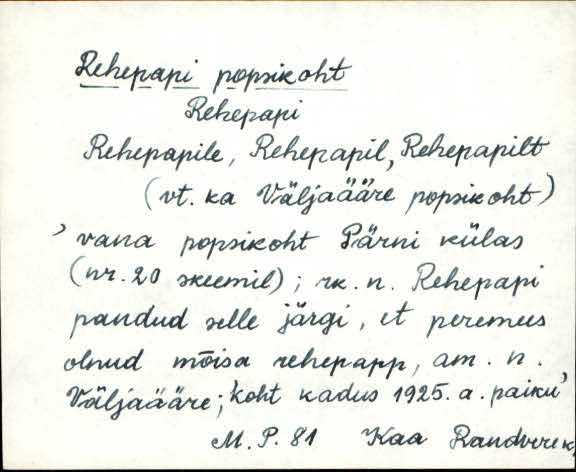 Rehepapi popsikoht
Rehepapi
Rehepapile, Rehepapil, Rehepapilt
(vt. ka Väljaääre popsikoht)
’vana popsikoht Pärni külas
(nr. 20 skeemil); rk. n. Rehepapi
pandud selle järgi, et peremees
olnud mõisa rehepapp, am. n.
Väljaääre; koht kadus 1925. a. paiku’
M. P. 81 Kaa Randverek,